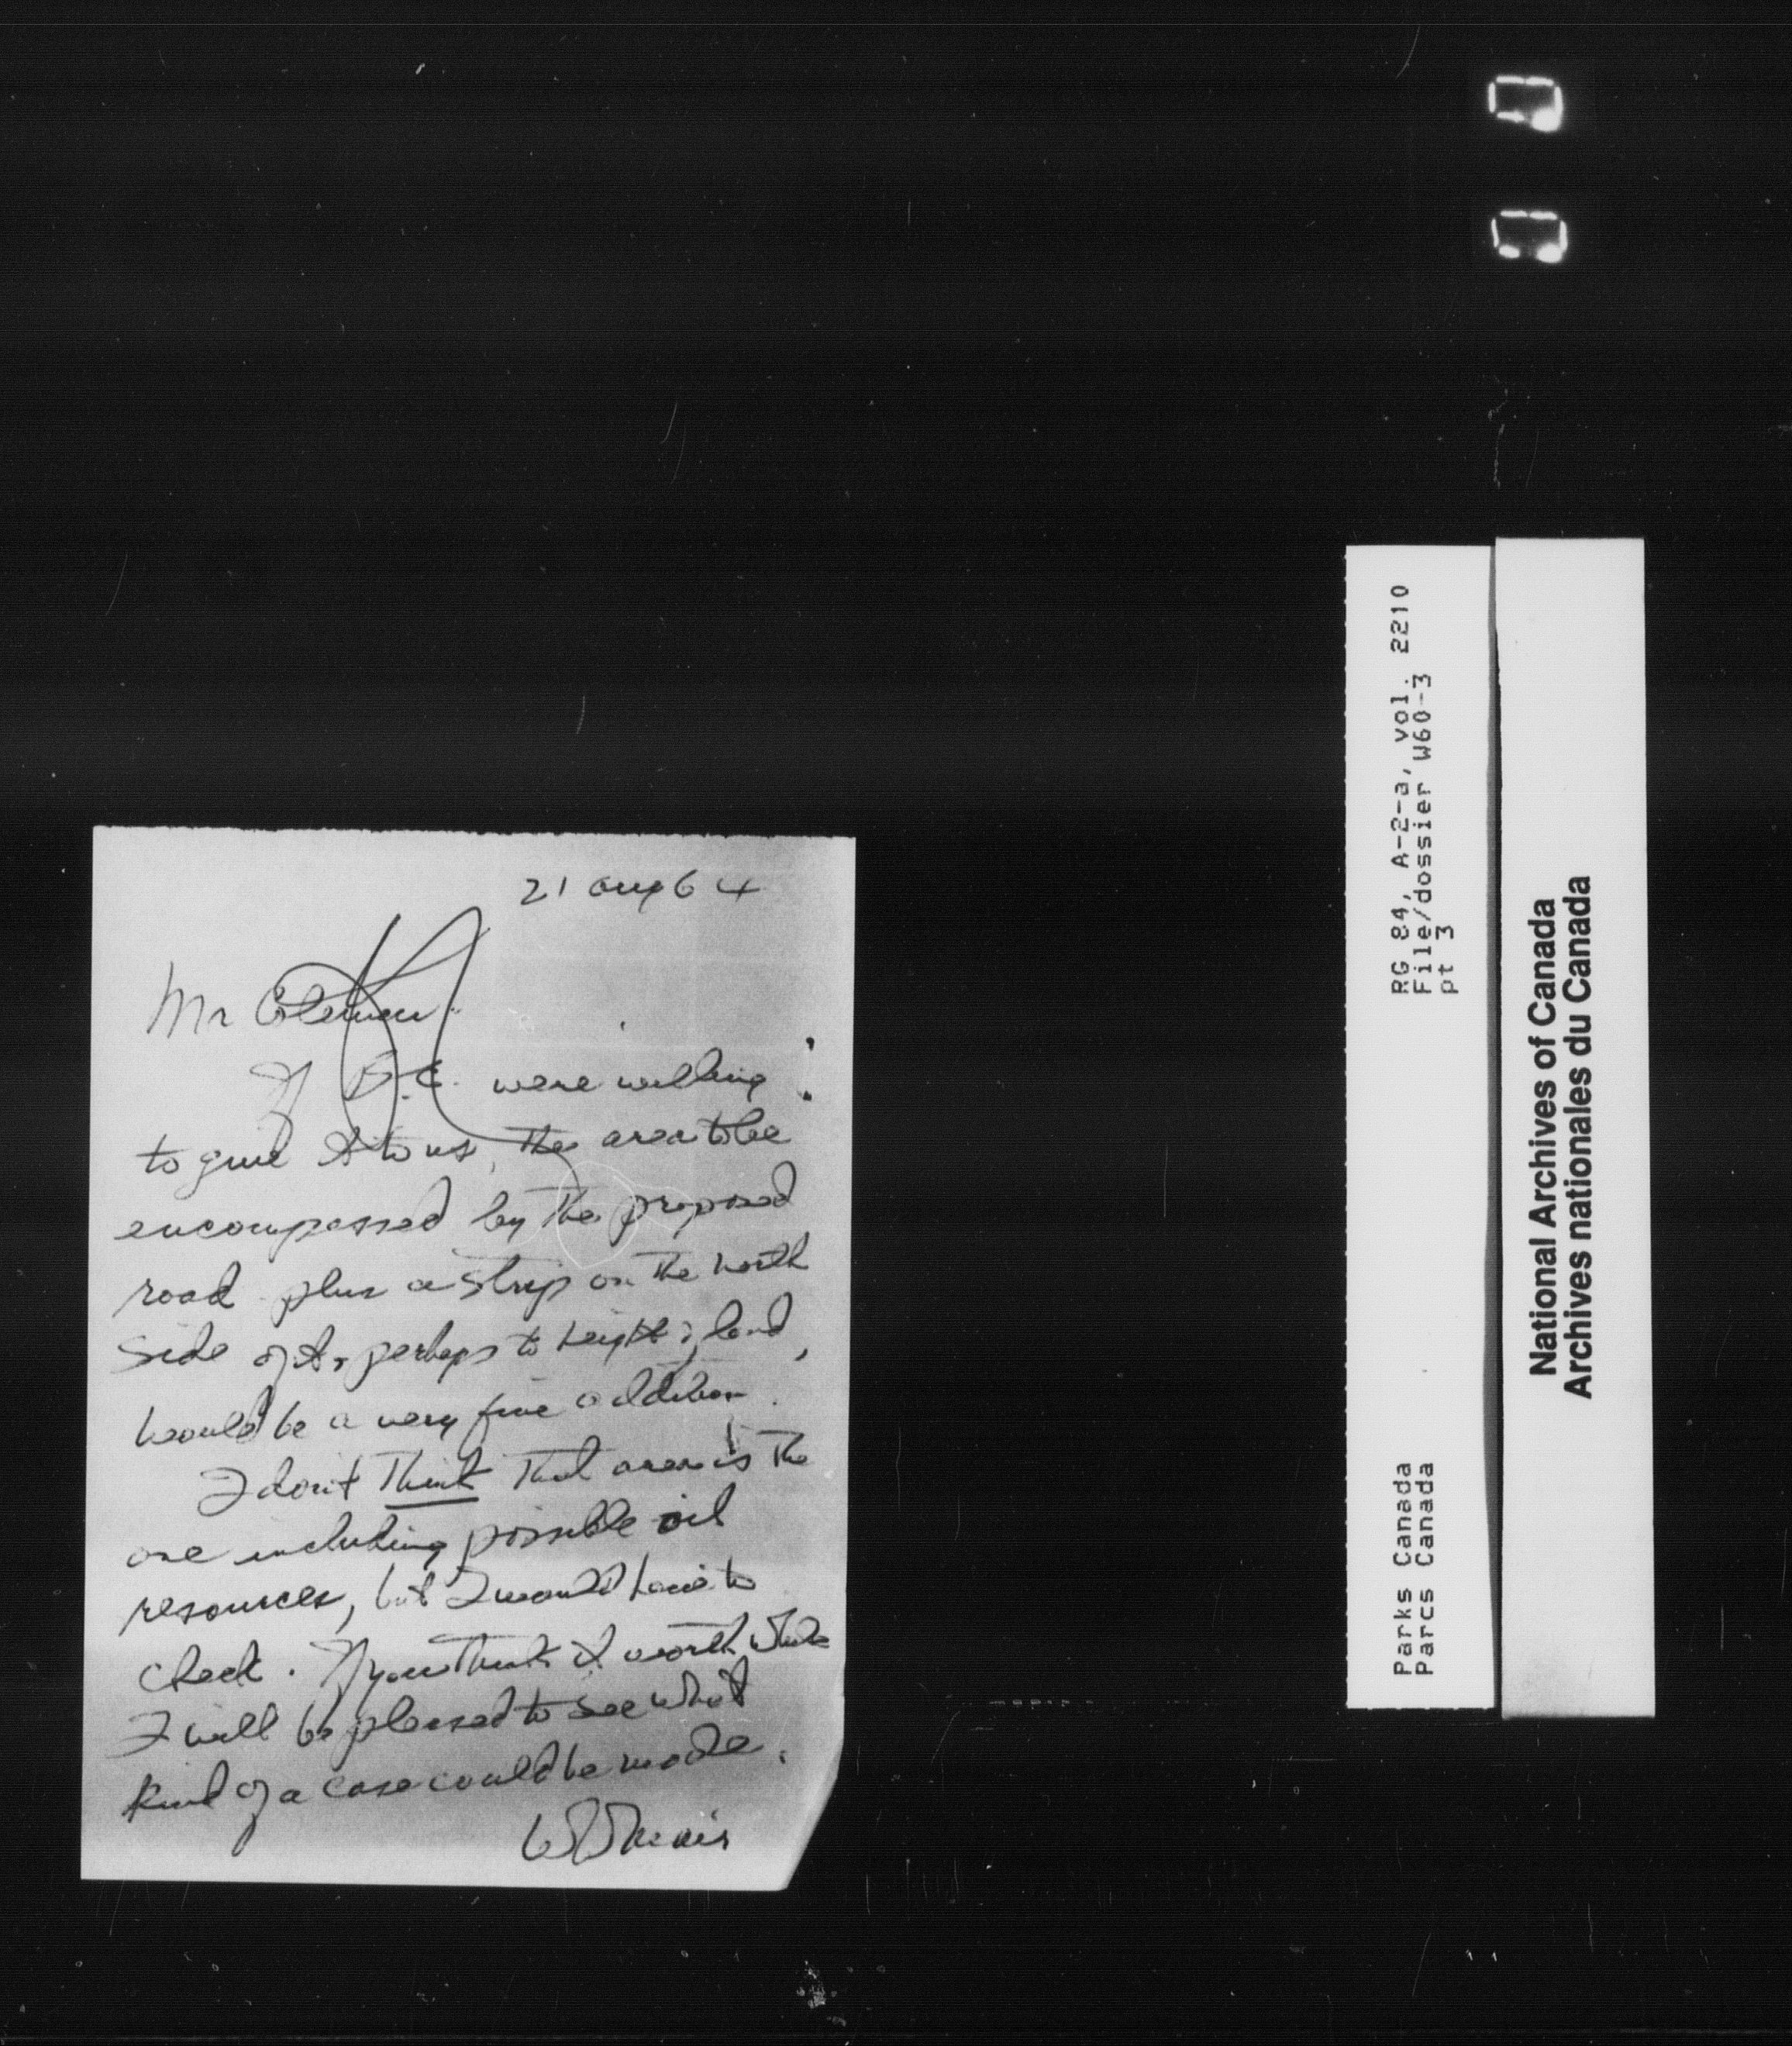 21 Aug 64
Mr Coleman.
If B.C. were willing
to give it to us, the area to be
encompassed by the proposed
road plus a strip on the north
side of it, perhaps to height of land,
would be a very fine addition.
I don't think that area is the
one including possible oil
resources, but I would have to
check. If you think it worth while
I will be pleased to see what
kind of a case could be made.
RG 84, A-2-a, vol. 2210
File/dossier W60-3
pt 3
Parks Canada
Parcs Canada
National Archives of Canada
Archives nationales du Canada